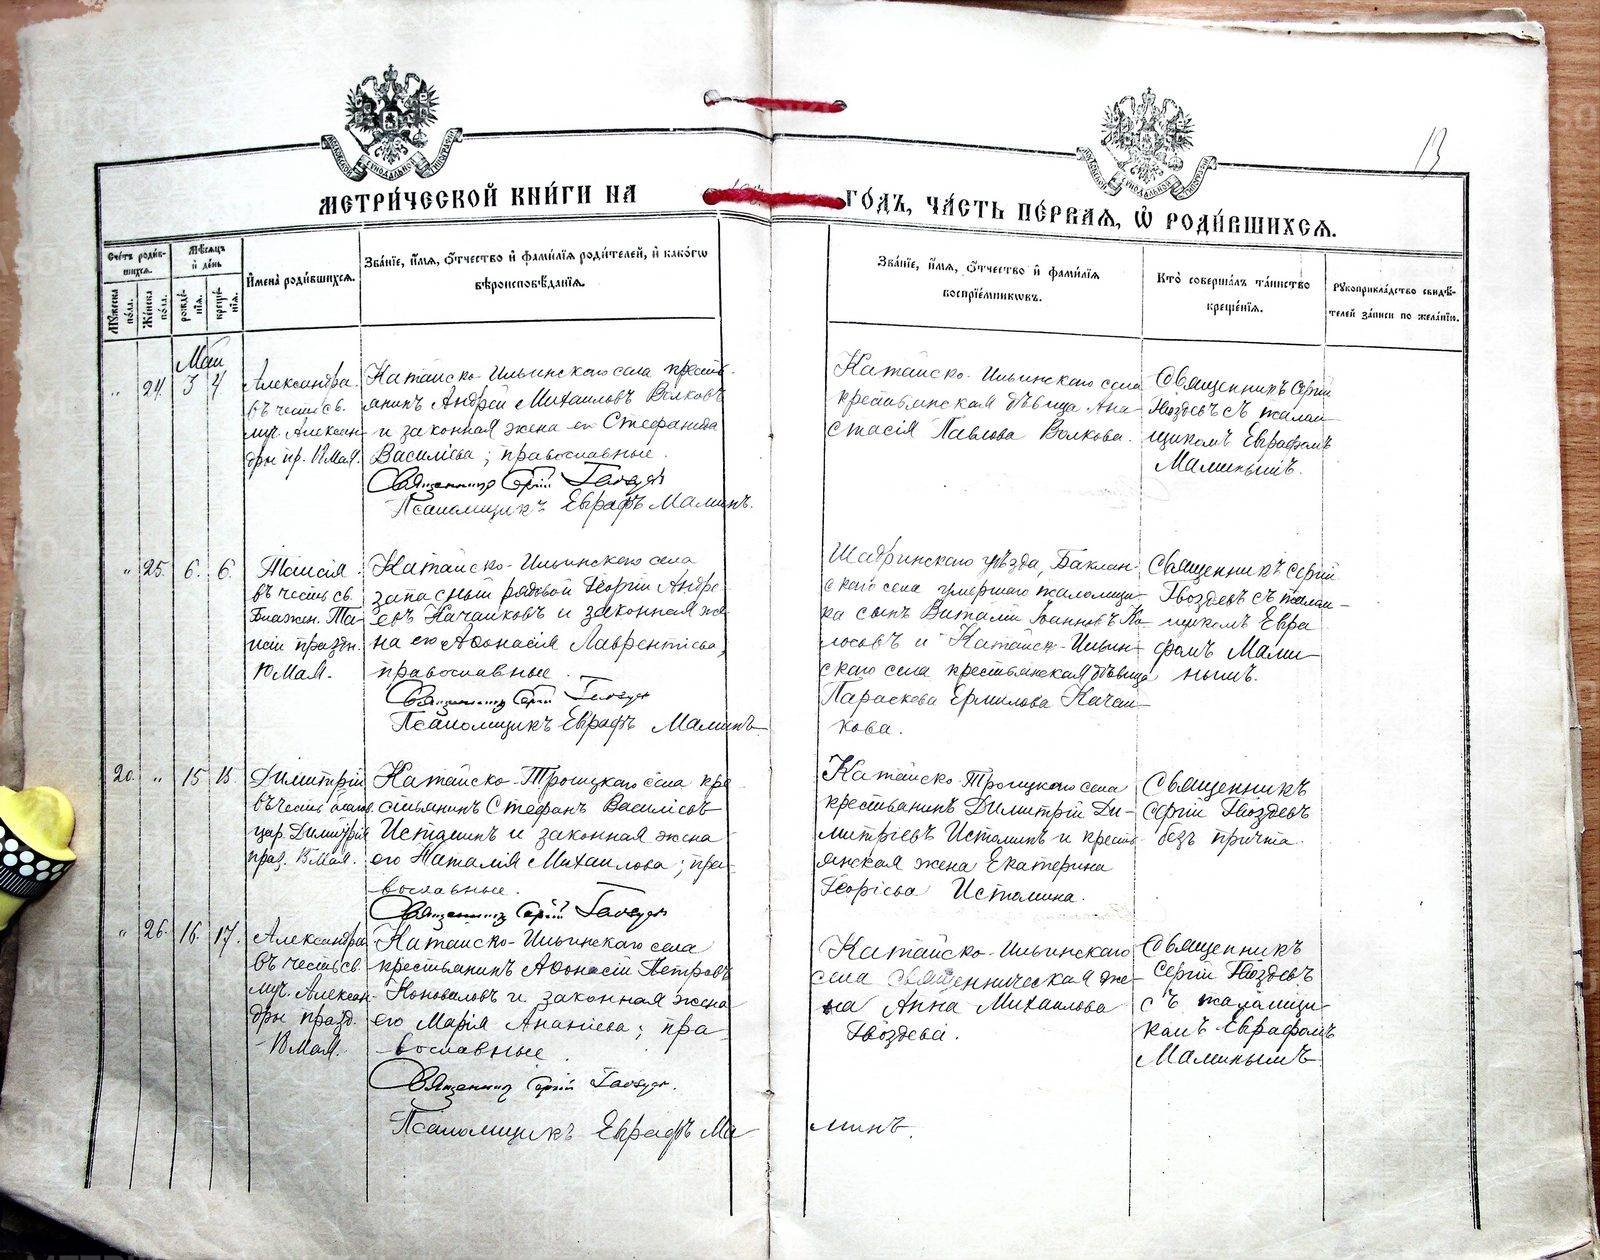 МОСКОВСКОЙ СѴНОДАЛЬНОЙ ТИПОГРАФІИ
МОСКОВСКОЙ СѴНОДАЛЬНОЙ ТИПОГРАФІИ
13
МЕТРИ́ЧЕСКОЙ КНИ́ГИ НА
ГО́ДЪ, ЧА́СТЬ ПЕ́РВАЯ, Ѽ РОДИ́ВШИХСЯ.
Сче́тъ роди́в-
шихся.
Мꙋжеска по́ла.
Же́нска по́ла.
Мѣ́сяцъ
и҆ де́нь
рожде́-
нїя.
креще́-
нїя.
И҆мена̀ роди́вшихся.
Зва́нїе, и҆́мя, ѻ҆́тчество и҆ фами́лїя роди́телей, и҆ како́гѡ
вѣроисповѣ́данїя.
Зва́нїе, и҆́мя, ѻ҆́тчество и҆ фами́лїя
воспрїе́мникѡвъ.
Кто̀ соверша́лъ та́инство
креще́нїя.
Рꙋкоприкла́дство свидѣ́-
телей за́писи по жела́нїю.
Май
„ 24. 3 4
Александра.
въ честь св.
муч. Алексан-
дры пр. 18 мая.
Катайско-Ильинскаго села кресть-
янинъ Андрей Михаиловъ Волковъ
и законная жена его Стефанида
Василіева; православные.
Священникъ Сергій Гвоздевъ
Псаломщикъ Евграфъ Маминъ.
Катайско-Ильинскаго села
крестьянская дѣвица Ана-
стасія Павлова Волкова.
Священникъ Сергій
Гвоздевъ съ псалом-
щикомъ Евграфомъ
Маминымъ.
„ 25. 6. 6.
Таисія
въ честь св.
Блажен. Та-
исіи праздн.
10 мая.
Катайско-Ильинскаго села
запасный рядовой Георгій Андре-
евъ Качалковъ и законная же-
на его Аѳонасія Лаврентіева,
православные.
Священникъ Сергій Гвоздевъ
Псаломщикъ Евграфъ Маминъ.
Шадринскаго уѣзда, Баклан-
скаго села умершаго псаломщи-
ка сынъ Виталій Іоанновъ Ко-
лосовъ и Катайско-Ильин-
скаго села крестьянская дѣвица
Параскева Ермилова Качал-
кова.
Священникъ Сергій
Гвоздевъ съ псалом-
щикомъ Евгра-
фомъ Мами-
нымъ.
20. „ 15 15.
Димитрій
въ честь благов.
цар. Димитрія
праз. 15 мая.
Катайско-Троицкаго села кре-
стьянинъ Стефанъ Василіевъ
Истоминъ и законная жена
его Наталія Михаилова; пра-
вославные.
Священникъ Сергій Гвоздевъ
Катайско-Троицкаго села
крестьянинъ Димитрій Ди-
митріевъ Истоминъ и кресть-
янская жена Екатерина
Георгіева Истомина.
Священникъ
Сергій Гвоздевъ
безъ причта.
„ 26. 16. 17.
Александра
въ честь св.
муч. Алексан-
дры празд.
18 мая.
Катайско-Ильинскаго села
крестьянинъ Аѳонасій Петровъ
Коноваловъ и законная жена
его Марія Ананіева; пра-
вославные.
Священникъ Сергій Гвоздевъ.
Псаломщикъ Евграфъ Ма-
минъ.
Катайско-Ильинскаго
села священническая же-
на Анна Михаилова
Гвоздева.
Священникъ
Сергій Гвоздевъ
съ псаломщи-
комъ Евграфомъ
Маминымъ